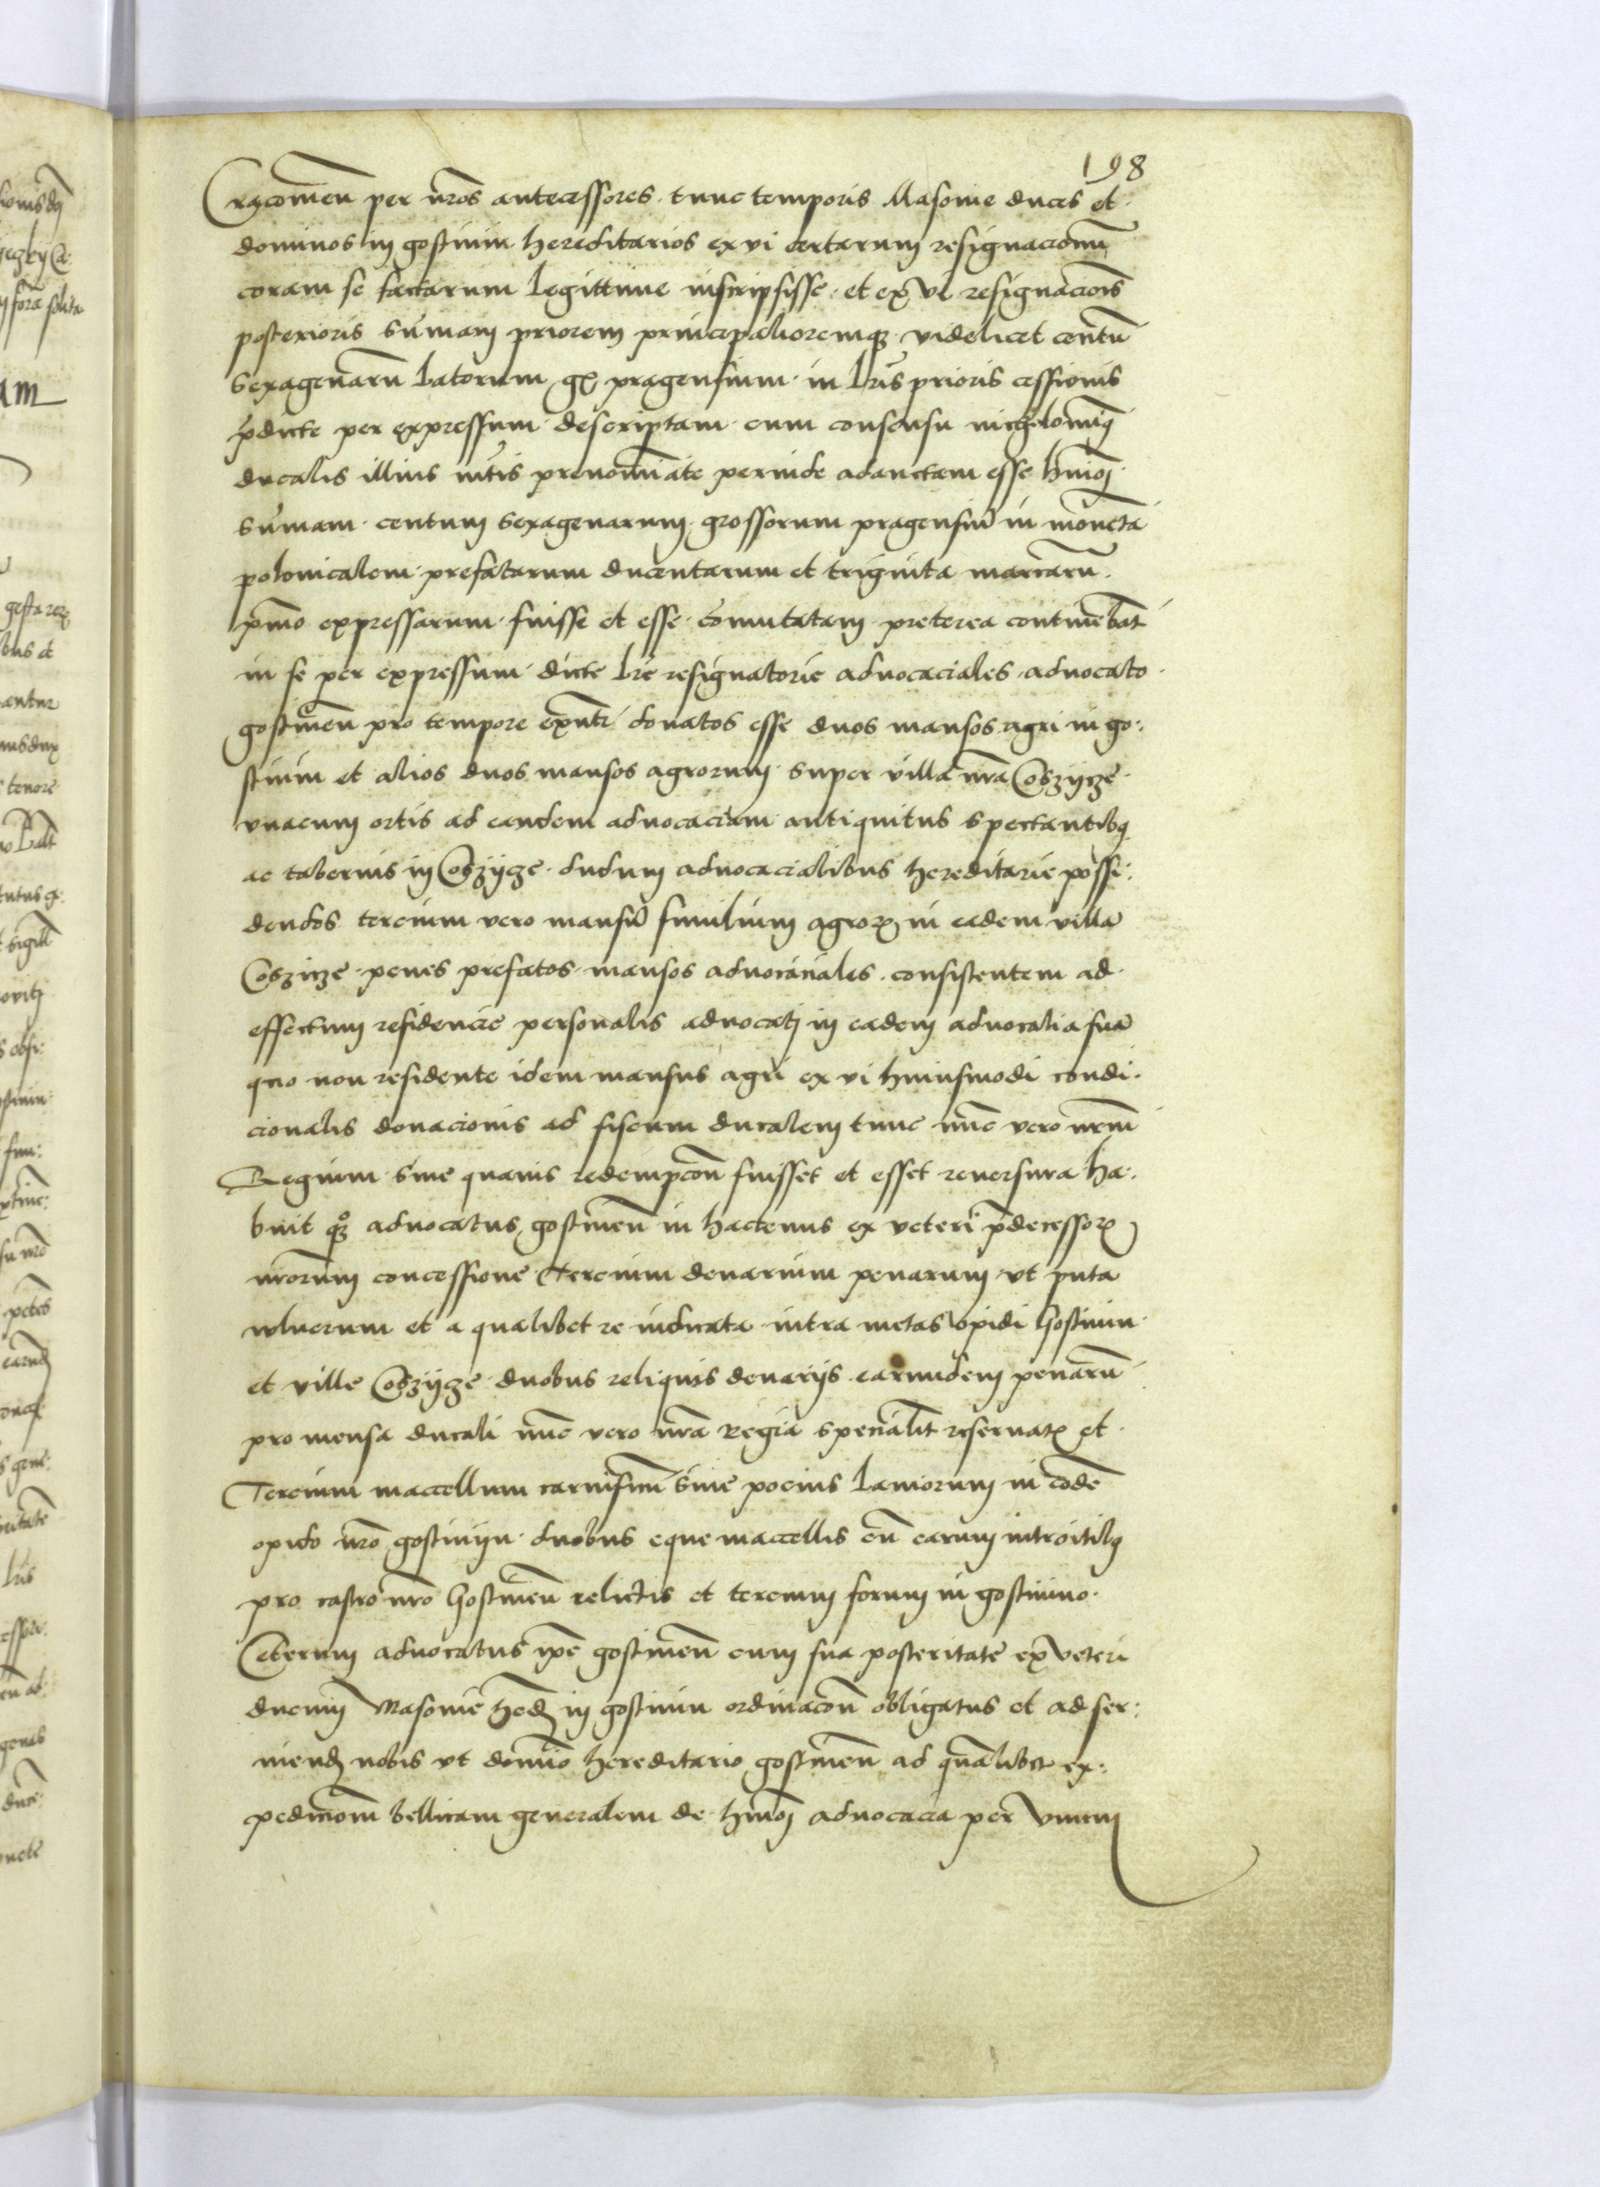 198
Cracomen per nros antecessores tunc temporis Masouie duces et
dominos in gostinin hereditarios ex vi certarum resignacionum
coram se factarum legittime inscripsisse et ex vi resignacionis
posterioris summam priorem principalioremque videlicet centum
sexagenarum latorum gr pragensium in lris prioris cessionis
pdicte per expressum descriptam cum consensu
ducalis illius prenominate perinde adauctam esse hmoi
summam centum sexagenarum grossorum pragensium in moneta
polonicalem prefatarum ducentarum et triginta marcaru
pmo expressarum fuisse et esse comutatam preterea continebat
in se per expressum dicte lre resignatorie aduocaciales aduocato
gostinen pro tempore exnti donatos esse duos mansos agri in go:
stinin et alios duos mansos agrorum super villa nra Coszycze
vnacum ortis ad eandem aduocaciam antiquitus spectantibus
ac tabernis in Coszycze dudum aduocacialibus hereditarie possi:
dendos tercium vero mansum similium agrorum in eadem villa
Coszicze penes prefatos mansos aduocaciales consistentem ad
effectum residencie personalis aduocati in eadem aduocatia sua
quo non residente idem mansus agri ex vi huiusmodi condi:
cionalis donacionis ad fiscum ducalem tunc nunc vero nrum
Regium sine quauis redempcon fuisset et esset reuersura ha:
buit aduocatus gostinen in hactenus ex veteri pdecessorum
nrorum concessione Tercium denarium penarum vt puta
wlnerum et a qualibet re iudicata intra metas opidi Gostinin
et ville Coszycze duobus reliquis denarijs earundem penarum
pro mensa ducali nunc vero nra Regia specialit reseruatis et
Tercium maccellum carnificum siue pocius laniorum in eode
opido nro gostinijn duobus eque maccellis cum earum introitibus
pro castro nro Gostinen relictis et tercium forum in gostinino
Ceterum aduocatus ipe gostinen cum sua posteritate ex veteri
ducum Masouie hed in gostinin ordinacon obligatus et ad ser:
uiend nobis vt domino hereditario gostinen ad quamlibet ex:
pedicionem bellicam generalem de hmoi aduocacia per vnum